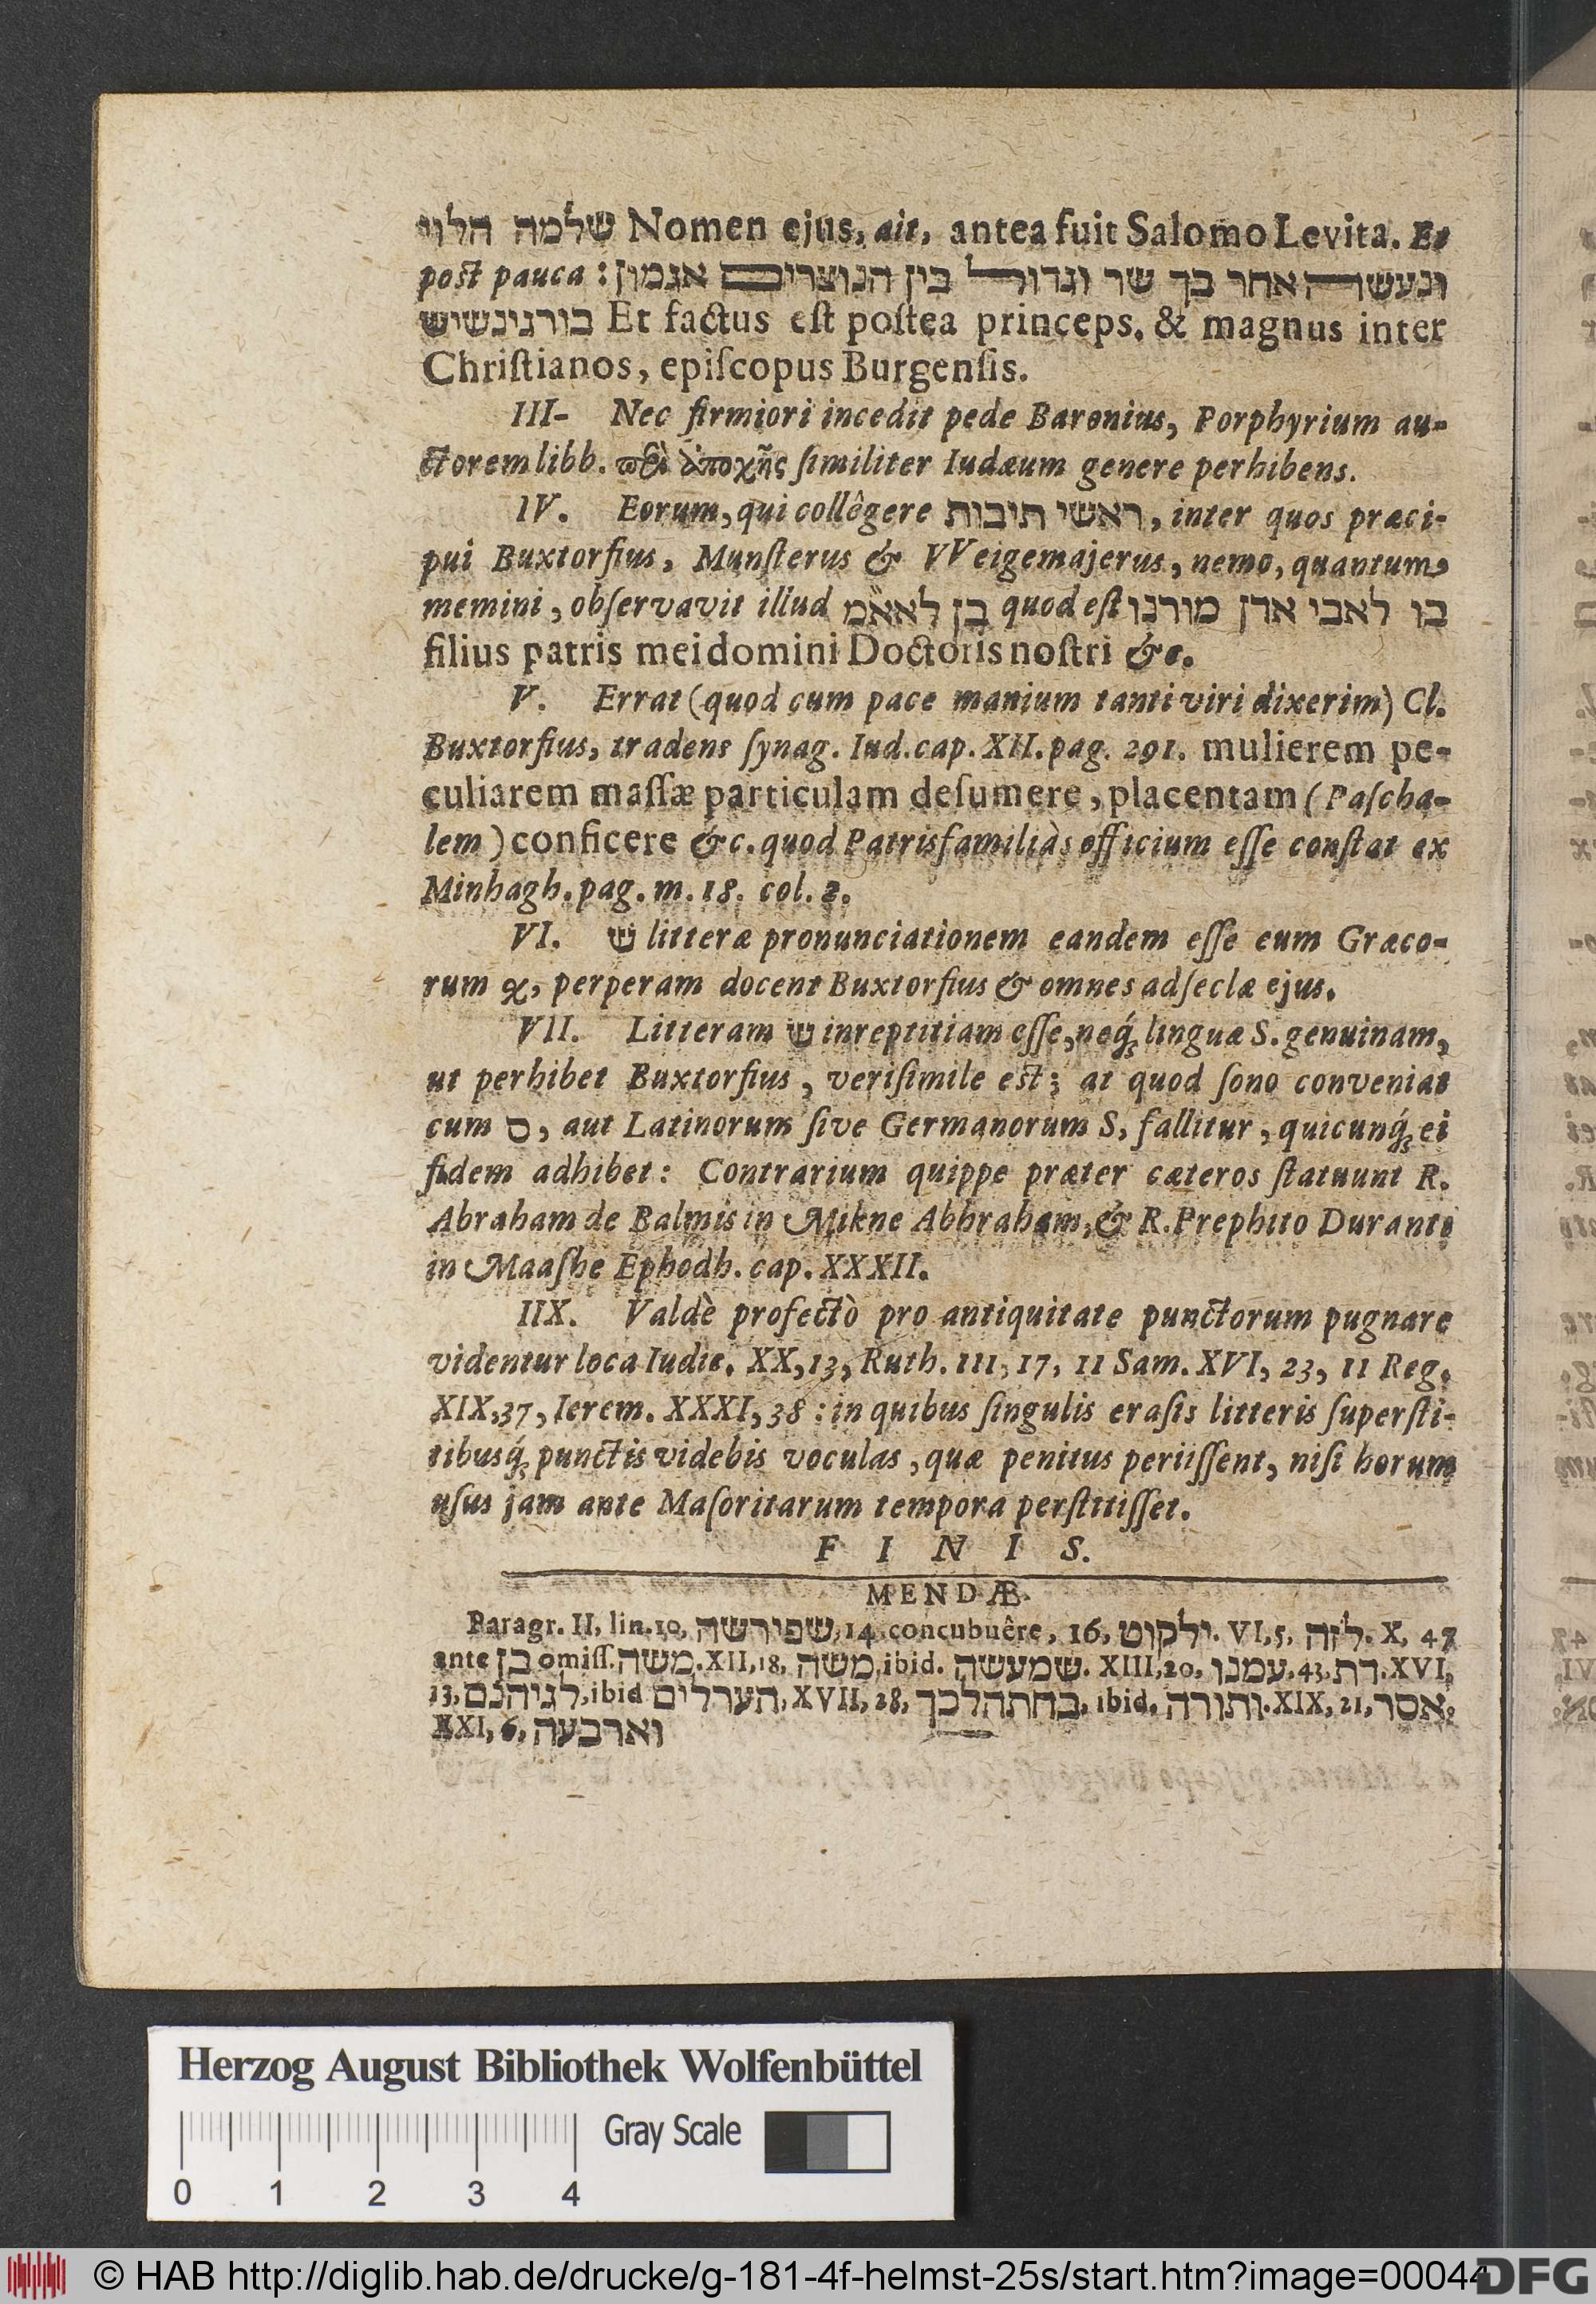 שלמה הלוי Nomen ejus, ait, antea fuit Salomo Levita. Et
post pauca : ונעשה אחר כך שר וגדול בין הנוצרים אגמון
בורגינשיש Et factus eſt poſtea princeps, & magnus inter
Chriſtianos, epiſcopus Burgenſis.
III- Nec firmiori incedit pede Baronius, Porphyrium au-
ctorem libb. περὶ ἀποχῆς ſimiliter Iudæum genere perhibens.
IV. Eorum, qui collêgere ראשי תיבות, inter quos præci-
pui Buxtorfius, Munſterus & VVeigemajerus, nemo, quantum
memini, obſervavit illud בן לאא״מ quod eſt בו לאבי אדן מורנו
filius patris mei domini Doctoris noſtri &c.
V. Errat (quod cum pace manium tanti viri dixerim) Cl.
Buxtorfius, tradens ſynag. Iud. cap. XII. pag. 291. mulierem pe-
culiarem maſſæ particulam deſumere, placentam (Paſcha-
lem) conficere &c. quod Patrisfamiliàs officium eſſe conſtat ex
Minhagh. pag. m. 18. col. 2.
VI. שׁ litteræ pronunciationem eandem eſſe cum Græco-
rum χ, perperam docent Buxtorfius & omnes adſeclæ ejus.
VII. Litteram שׂ inreptitiam eſſe, neq́; linguæ S. genuinam,
ut perhibet Buxtorfius, veriſimile eſt; at quod ſono conveniat
cum ס, aut Latinorum ſive Germanorum S, fallitur, quicunq́; ei
fidem adhibet: Contrarium quippe præter cæteros ſtatuunt R.
Abraham de Balmis in Mikne Abhraham, & R. Prephito Duranto
in Maaſhe Ephodh. cap. XXXII.
IIX. Valdè profectò pro antiquitate punctorum pugnare
videntur loca Iudic. XX, 13, Ruth. III, 17, II Sam. XVI, 23, II Reg.
XIX, 37, Ierem. XXXI, 38 : in quibus ſingulis eraſis litteris ſuperſti-
tibusq́; punctis videbis voculas, quæ penitus periiſſent, niſi horum
uſus jam ante Maſoritarum tempora perſtitiſſet.
F I N I S.
MENDÆ.
Paragr. II, lin. 10, שפירשה, 14. concubuêre, 16, ילקוט. VI, 5, לזה. X, 47
ante בן omiſſ. משה. XII, 18, משה, ibid. שמעשה. XIII, 20, עמנו. 43, דת. XVI,
13, לגיהנם, ibid הערלים, XVII, 28, בחתהלכך, ibid. ותורה. XIX, 21, אסר.
XXI, 6, וארבעה
Herzog August Bibliothek Wolfenbüttel
Gray Scale
0 1 2 3 4
© HAB http://diglib.hab.de/drucke/g-181-4f-helmst-25s/start.htm?image=00044
DFG